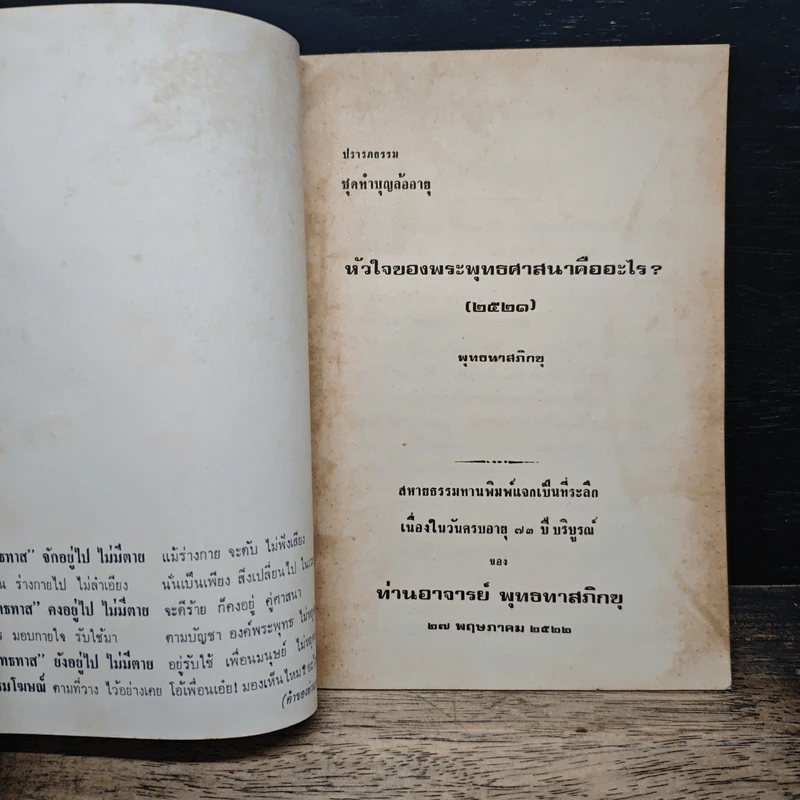 ทธทาส” จักอยู่ไป ไม่มีตาย แม้ร่างกาย จะดับ ไม่ฟังเสียง
ร่างกายไป ไม่ลำเอียง นั่นเป็นเพียง สิ่งเปลี่ยนไป
ทธทาส” คงอยู่ไป ไม่มีตาย จะดีร้าย ก็คงอยู่ คู่ศาสนา
มอบกายใจ รับใช้มา ตามบัญชา องค์พระพุทธ
ทธทาส” ยังอยู่ไป ไม่มีตาย อยู่รับใช้ เพื่อนมนุษย์
รมโฆษณ์ ตามที่วาง ไว้อย่างเคย โอ้เพื่อนเอ๋ย! มองเห็นไหม
ปรารภธรรม
ชุดทำบุญล้ออายุ
หัวใจของพระพุทธศาสนาคืออะไร?
(๒๕๒๑)
พุทธทาสภิกขุ
สหายธรรมทานพิมพ์แจกเป็นที่ระลึก
เนื่องในวันครบอายุ ๗๓ ปี บริบูรณ์
ของ
ท่านอาจารย์ พุทธทาสภิกขุ
๒๗ พฤษภาคม ๒๕๒๒